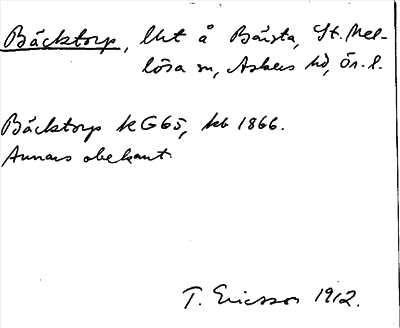 Bäcktorp, lht å Bärsta, St. Mel-
lösa sn, Askers hd, Ör. l.
Bäcktorp k G65, kb 1866.
Annars obekant
T. Ericsson 1912.